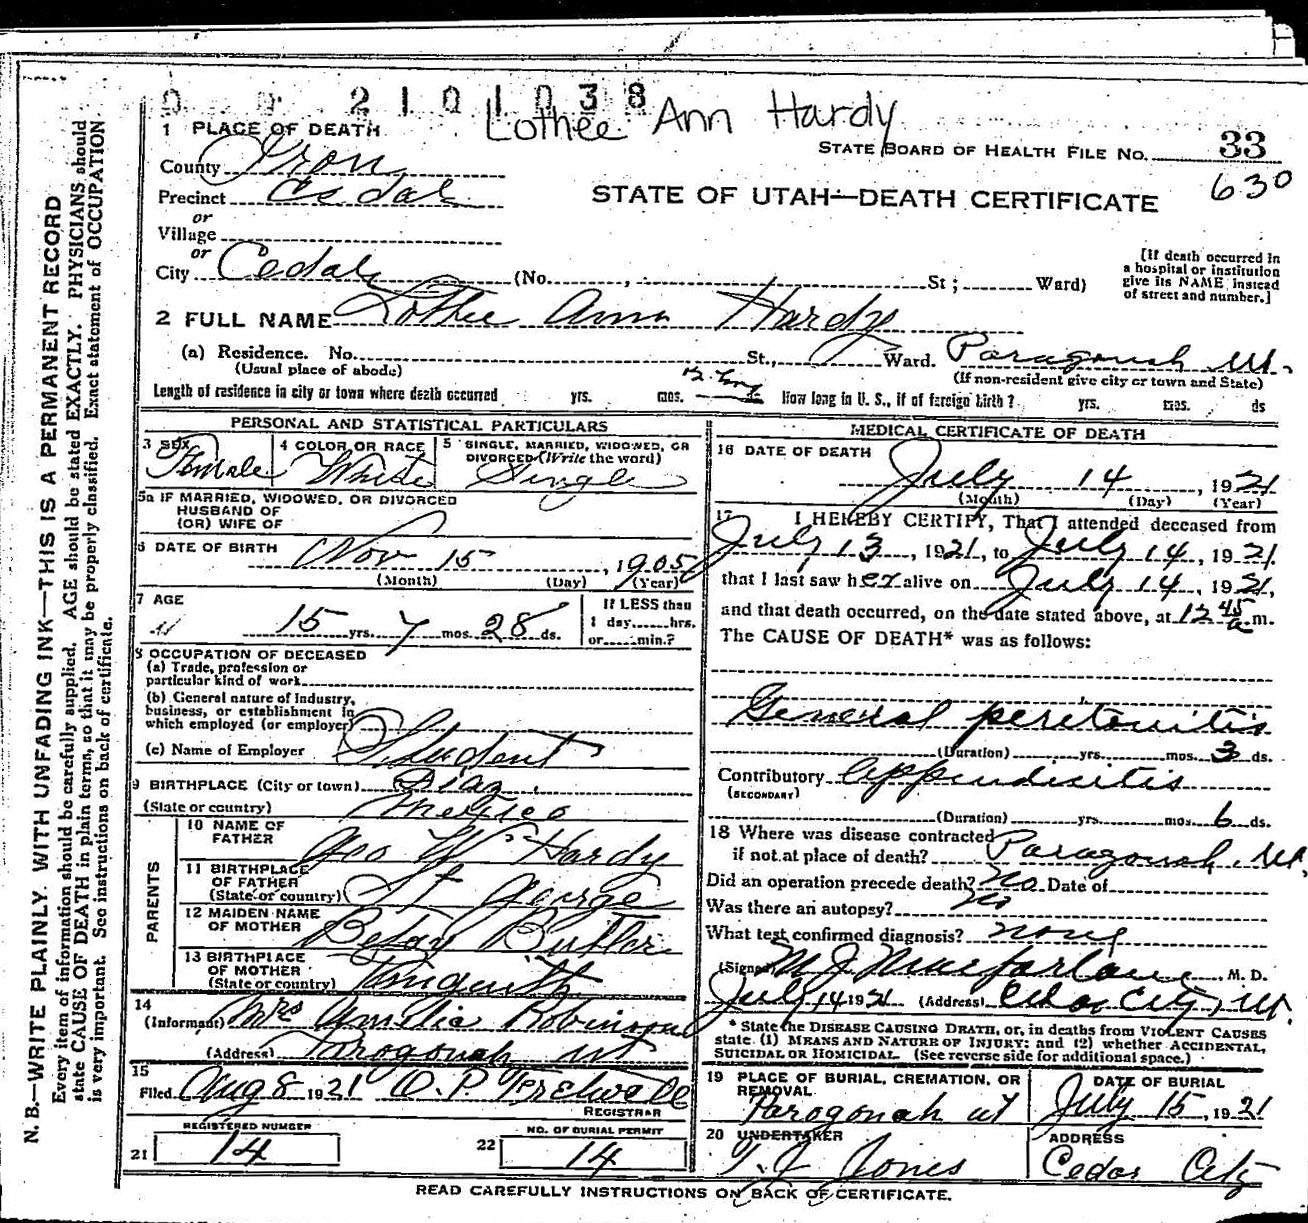 0 0 2101038
Lothee Ann Hardy
1 PLACE OF DEATH
STATE BOARD OF HEALTH FILE NO. 33
630
County Iron
Precinct Cedar
STATE OF UTAH—DEATH CERTIFICATE
or
Village
or
City Cedar (No. , St ; Ward)
[If death occurred in
a hospital or institution
give its NAME instead
of street and number.]
2 FULL NAME Lothee Ann Hardy
(a) Residence. No. St., Ward. Paragonah Ut.
(Usual place of abode) (If non-resident give city or town and State)
Length of residence in city or town where death occurred yrs. mos. How long in U. S., if of foreign birth? yrs. mos. ds
PERSONAL AND STATISTICAL PARTICULARS
3 SEX Female
4 COLOR OR RACE White
5 SINGLE, MARRIED, WIDOWED, OR
DIVORCED (Write the word)
Single
5a IF MARRIED, WIDOWED, OR DIVORCED
HUSBAND OF
(OR) WIFE OF
6 DATE OF BIRTH Nov 15, 1905
(Month) (Day) (Year)
7 AGE
15 yrs. 7 mos. 28 ds.
If LESS than
1 day hrs.
or min.?
8 OCCUPATION OF DECEASED
(a) Trade, profession or
particular kind of work
(b) General nature of industry,
business, or establishment in
which employed (or employer)
Student
(c) Name of Employer
9 BIRTHPLACE (City or town) Diaz
(State or country) Mexico
PARENTS
10 NAME OF
FATHER Geo W Hardy
11 BIRTHPLACE
OF FATHER
(State or country) St George
12 MAIDEN NAME
OF MOTHER Betsy Butler
13 BIRTHPLACE
OF MOTHER
(State or country)
14
(Informant) Mrs Amelia Robinson
(Address) Parogonah Ut
15
Filed Aug 8 1921 O. P.
REGISTRAR
REGISTERED NUMBER
21 14
NO. OF BURIAL PERMIT
22 14
MEDICAL CERTIFICATE OF DEATH
16 DATE OF DEATH
July 14, 1921
(Month) (Day) (Year)
17 I HEREBY CERTIFY, That I attended deceased from
July 13, 1921, to July 14, 1921.
that I last saw her alive on July 14, 1921,
and that death occurred, on the date stated above, at 12 45 a m.
The CAUSE OF DEATH* was as follows:
General peretonitis
(Duration) yrs. mos. 3 ds.
Contributory Appendicitis
(SECONDARY)
(Duration) yrs. mos. 6 ds.
18 Where was disease contracted
if not at place of death? Paragonah, Ut,
Did an operation precede death? No Date of
Was there an autopsy? No
What test confirmed diagnosis? none
(Signed) M. J. Macfarlane, M. D.
July 14 1921 (Address) Cedar City, Ut.
* State the DISEASE CAUSING DEATH, or, in deaths from VIOLENT CAUSES
state (1) MEANS AND NATURE OF INJURY; and (2) whether ACCIDENTAL,
SUICIDAL OR HOMICIDAL. (See reverse side for additional space.)
19 PLACE OF BURIAL, CREMATION, OR
REMOVAL
Parogonah ut
DATE OF BURIAL
July 15, 1921
20 UNDERTAKER
T. J. Jones
ADDRESS
Cedar City
READ CAREFULLY INSTRUCTIONS ON BACK OF CERTIFICATE.
N. B.—WRITE PLAINLY, WITH UNFADING INK—THIS IS A PERMANENT RECORD
Every item of information should be carefully supplied. AGE should be stated EXACTLY. PHYSICIANS should
state CAUSE OF DEATH in plain terms, so that it may be properly classified. Exact statement of OCCUPATION
is very important. See instructions on back of certificate.